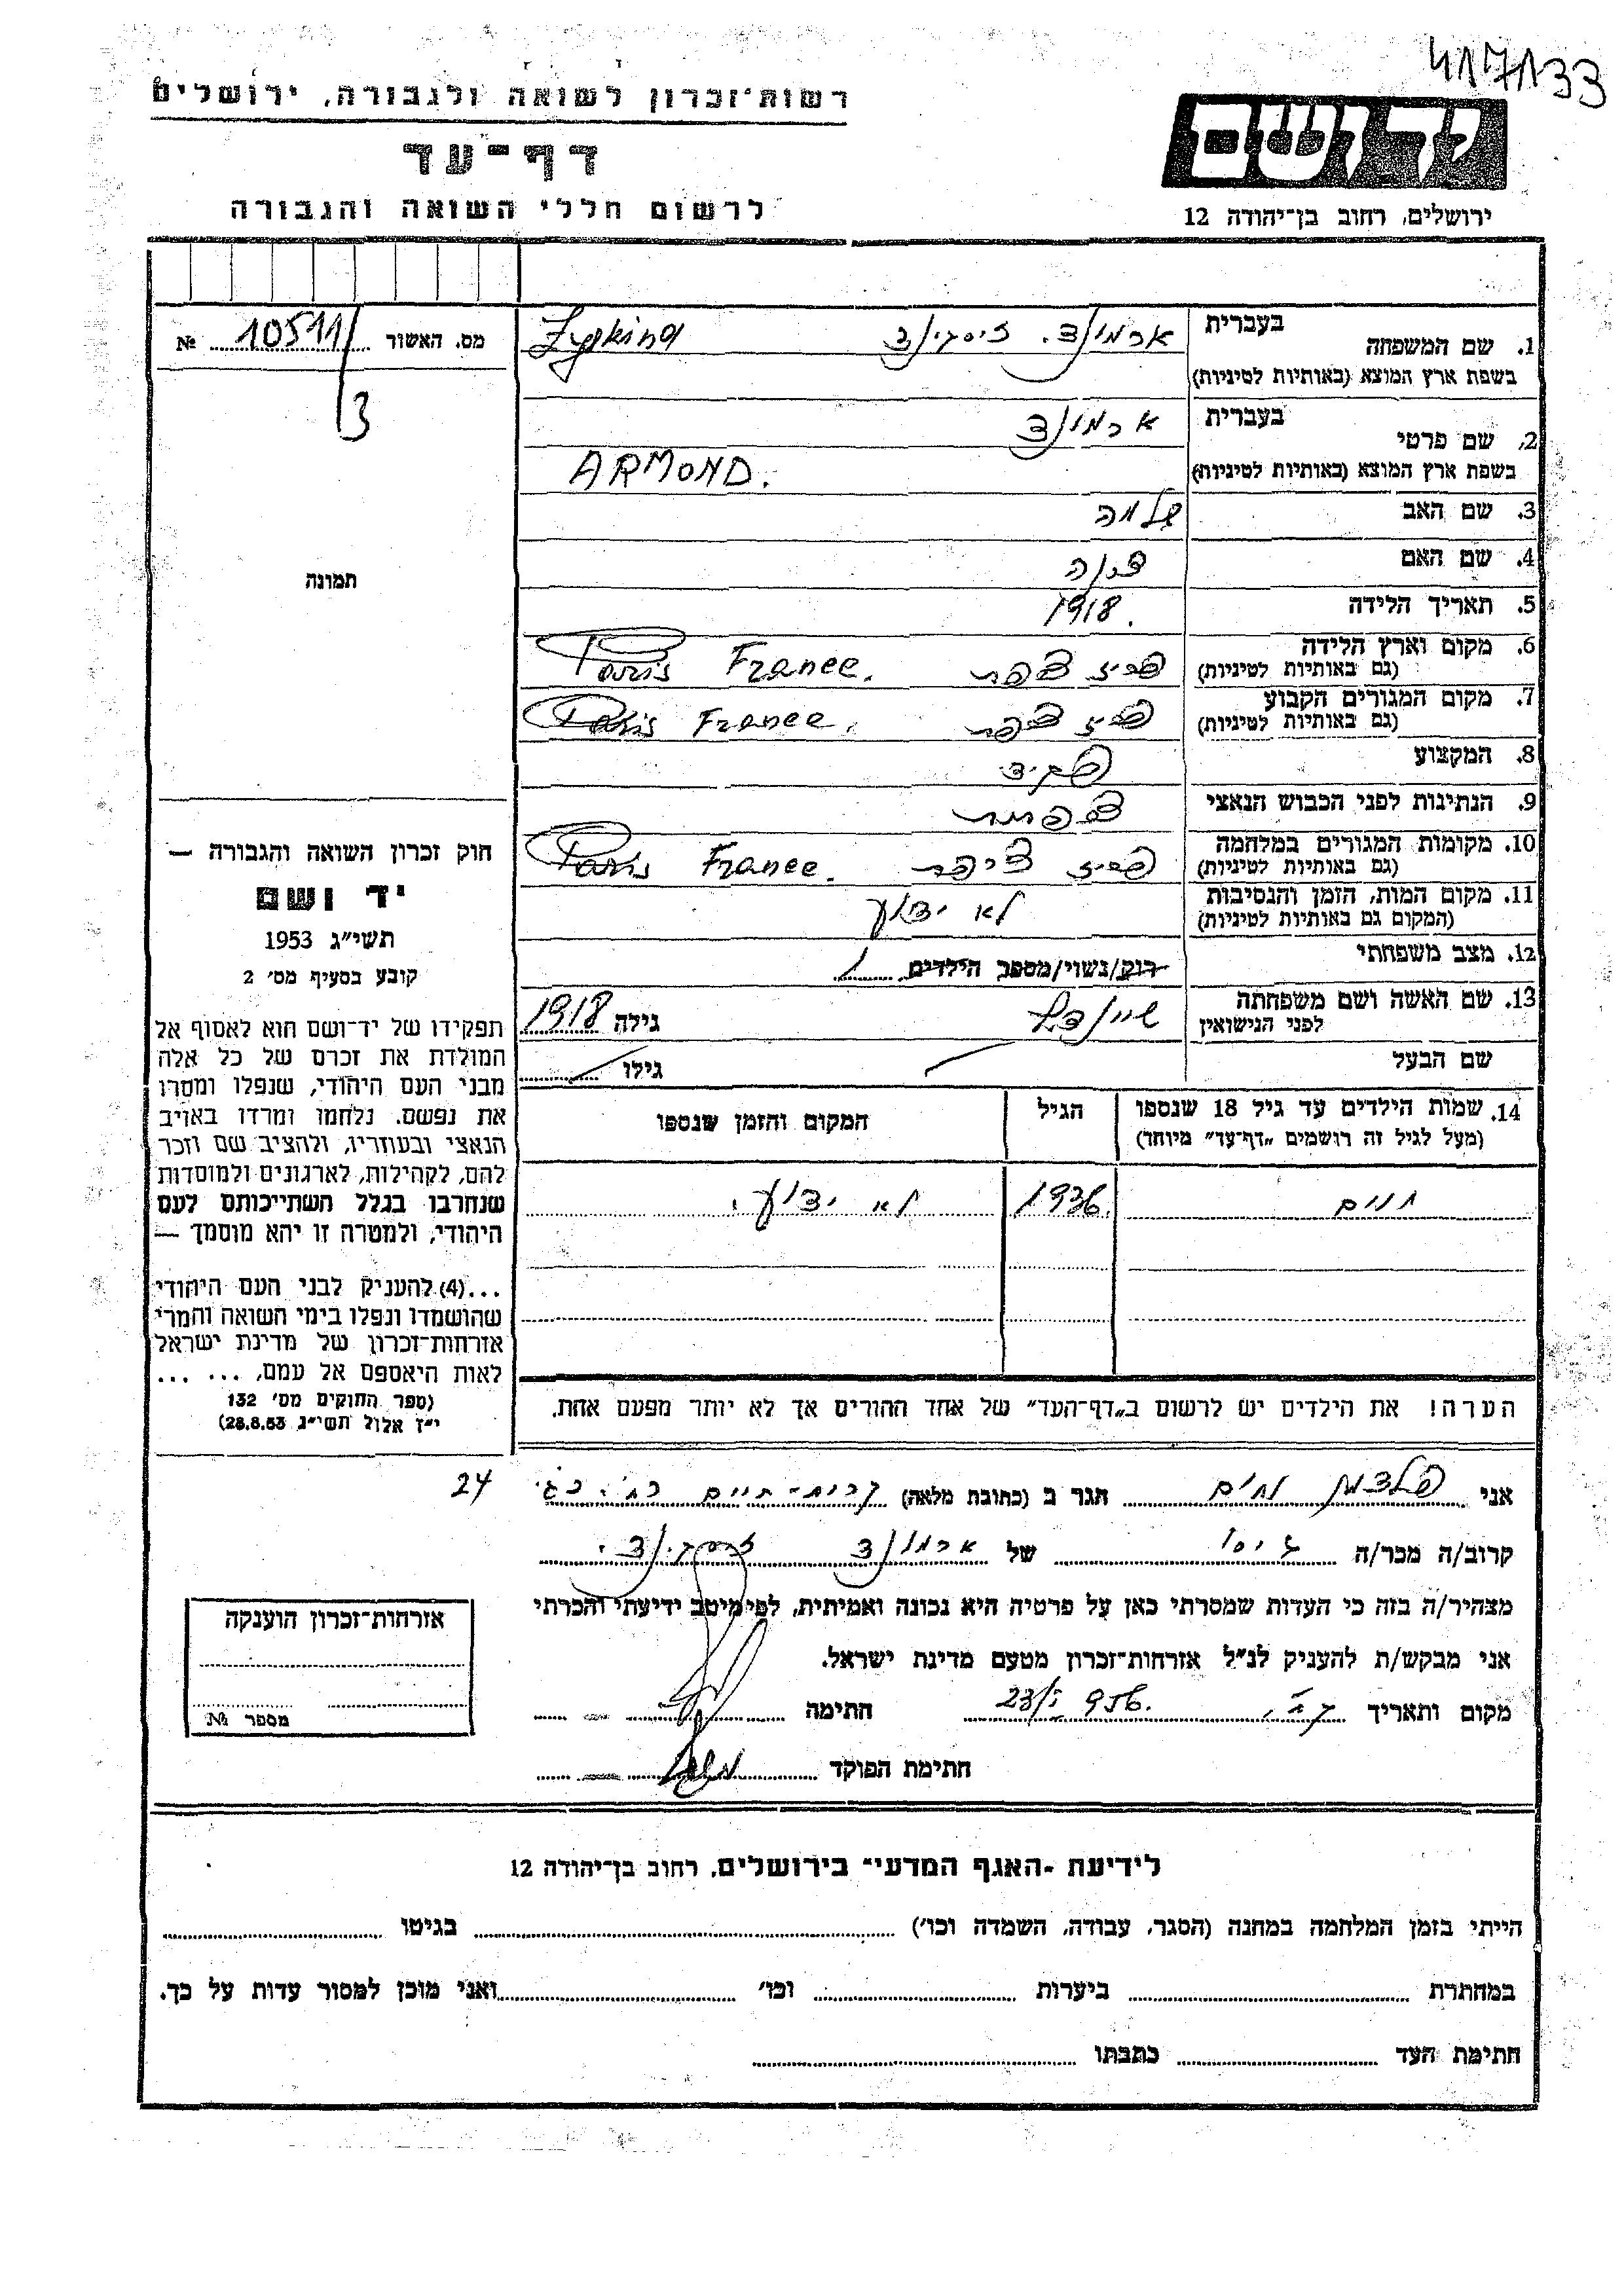 41/7133
רשות־זכרון לשואה ולגבורה, ירושלים
דף־עד
לרשום חללי השואה והגבורה
יד ושם
ירושלים, רחוב בן־יהודה 12
בעברית
1. שם המשפחה ארמונד. זיסקינד Zyskind
בשפת ארץ המוצא (באותיות לטיניות)
בעברית
2. שם פרטי ארמונד
בשפת ארץ המוצא (באותיות לטיניות) ARMOND.
3. שם האב שלמה
4. שם האם
5. תאריך הלידה 1918.
6. מקום וארץ הלידה פריז צרפת Paris France.
(גם באותיות לטיניות)
7. מקום המגורים הקבוע פריז צרפת Paris France.
(גם באותיות לטיניות)
8. המקצוע פקיד
9. הנתינות לפני הכבוש הנאצי צרפתית
10. מקומות המגורים במלחמה פריז Paris France.
(גם באותיות לטיניות)
11. מקום המות, הזמן והנסיבות לא ידוע
(המקום גם באותיות לטיניות)
12. מצב משפחתי רוק/נשוי/מספר הילדים 1
13. שם האשה ושם משפחתה שיינדל גילה 1918
לפני הנישואין
שם הבעל גילו
14. שמות הילדים עד גיל 18 שנספו הגיל המקום והזמן שנספו
(מעל לגיל זה רושמים „דף־עד” מיוחד)
חיים 1936. לא ידוע.
הערה! את הילדים יש לרשום ב„דף־העד” של אחד ההורים אך לא יותר מפעם אחת.
מס. האשור 10511/3 №
תמונה
חוק זכרון השואה והגבורה —
יד ושם
תשי״ג 1953
קובע בסעיף מס׳ 2
תפקידו של יד־ושם הוא לאסוף אל
המולדת את זכרם של כל אלה
מבני העם היהודי, שנפלו ומסרו
את נפשם. נלחמו ומרדו באויב
הנאצי ובעוזריו, ולהציב שם וזכר
להם, לקהילות, לארגונים ולמוסדות
שנחרבו בגלל השתייכותם לעם
היהודי, ולמטרה זו יהא מוסמך —
...(4) להעניק לבני העם היהודי
שהושמדו ונפלו בימי השואה והמרי
אזרחות־זכרון של מדינת ישראל
לאות היאספם אל עמם, ... ...
(ספר החוקים מס׳ 132
י״ז אלול תשי״ג 28.8.53)
אני פלדמן חיים הגר ב (כתובת מלאה) קרית-חיים רח׳ כג׳ 24
קרוב/ה מכר/ה גיסו של ארמונד זיסקינד.
מצהיר/ה בזה כי העדות שמסרתי כאן על פרטיה היא נכונה ואמיתית, לפי מיטב ידיעתי והכרתי
אני מבקש/ת להעניק לנ״ל אזרחות־זכרון מטעם מדינת ישראל.
מקום ותאריך ק״ח, 23/ 956. חתימה
חתימת הפוקד
אזרחות־זכרון הוענקה
מספר №
לידיעת ״האגף המדעי״ בירושלים, רחוב בן־יהודה 12
הייתי בזמן המלחמה במחנה (הסגר, עבודה, השמדה וכו׳) בגיטו
במחתרת ביערות וכו׳ ואני מוכן למסור עדות על כך.
חתימת העד כתבתו